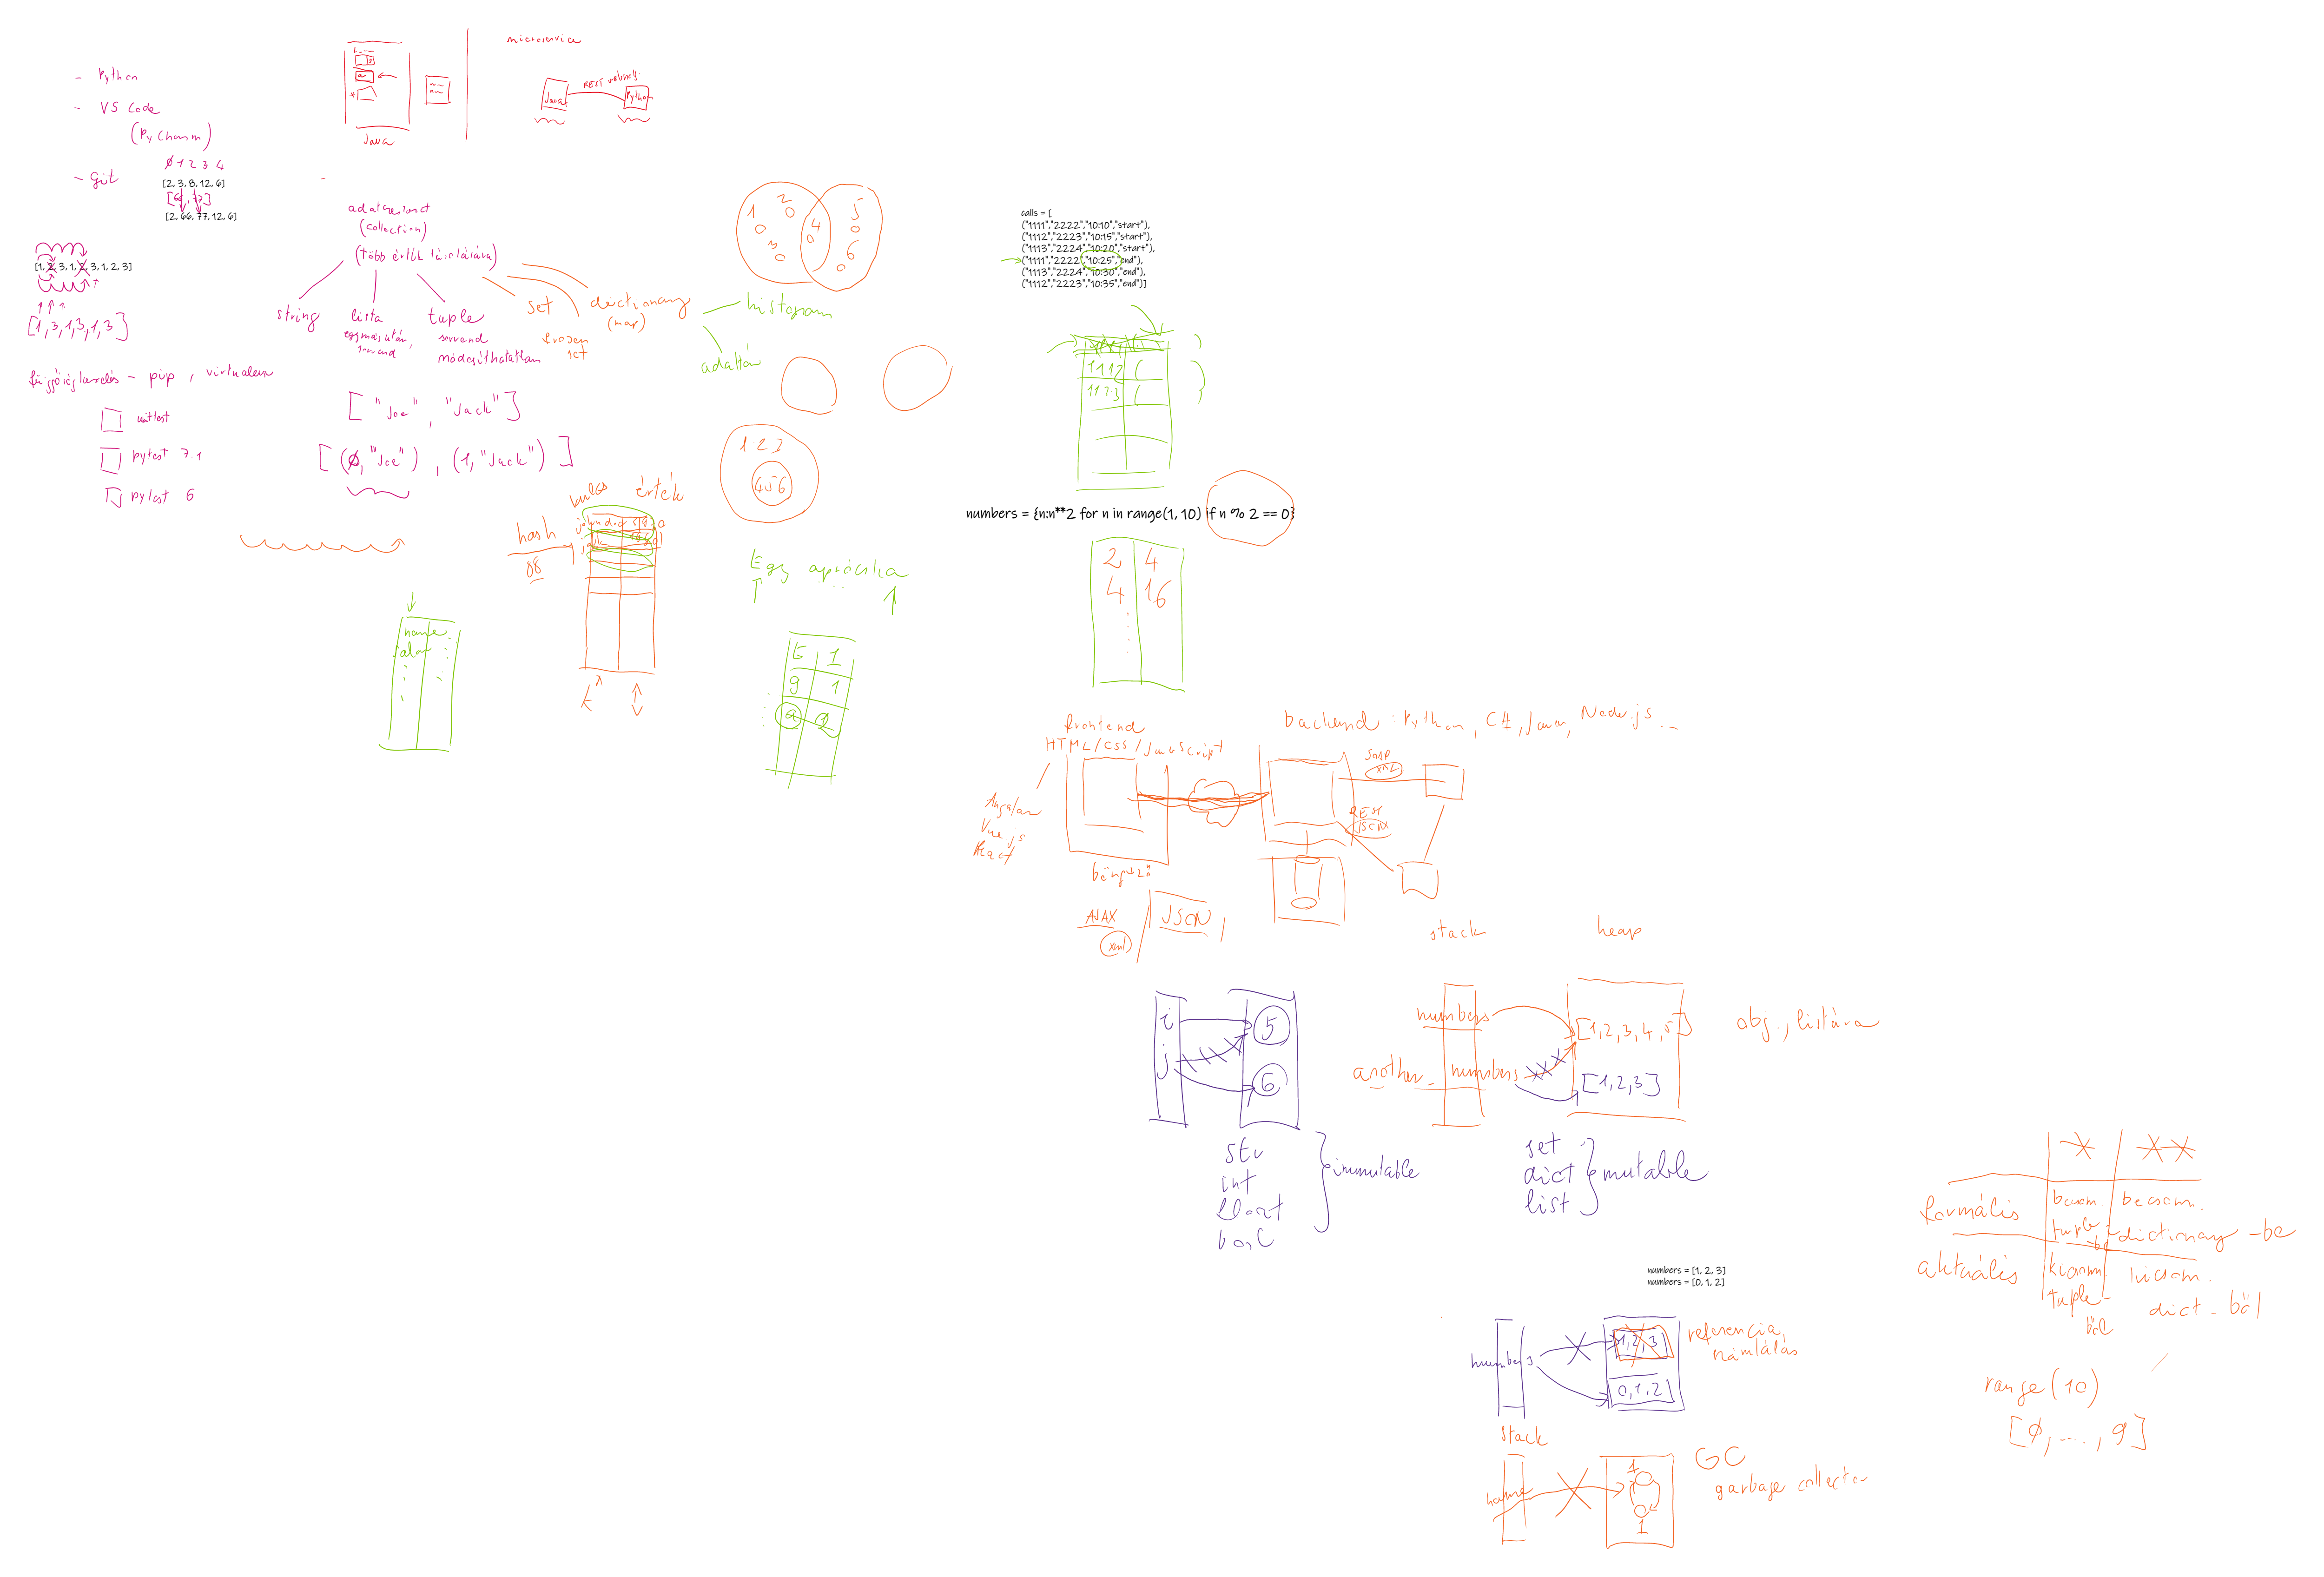 - Python
- VS Code
(PyCharm)
- Git
0 1 2 3 4
[2, 3, 8, 12, 6]
[66, 77]
[2, 66, 77, 12, 6]
[1, 2, 3, 1, 2, 3, 1, 2, 3]
[1, 3, 1, 3, 1, 3]
pip, virtualenv
unittest
pytest 7.1
pytest 6
Java
microservice
Java
REST
Python
(collection)
(több érték tárolására)
string
lista
egymásután,
sorrend
tuple
sorrend
módosíthatatlan
set
frozen
set
dictionary
(map)
histogram
["Joe", "Jack"]
[(0, "Joe"), (1, "Jack")]
1 2 3 4 5 6
1 2 3
4 5 6
kulcs érték
hash
88
k v
name
Egy aprócska
E 1
g 1
a 2
calls = [
("1111","2222","10:10","start"),
("1112","2223","10:15","start"),
("1113","2224","10:20","start"),
("1111","2222","10:25","end"),
("1113","2224","10:30","end"),
("1112","2223","10:35","end")]
1112 (
1123 (
numbers = {n:n**2 for n in range(1, 10) if n % 2 == 0}
2 4
4 16
frontend
HTML/CSS/JavaScript
Angular
Vue.js
React
böngésző
AJAX
xml
JSON
backend: Python, C#, Java, Node.js ...
SOAP
XML
REST
JSON
stack heap
i
j
5
6
str
int
float
bool
immutable
numbers
another_numbers
[1,2,3,4,5]
[1,2,3]
obj., listára
set
dict
list
mutable
numbers = [1, 2, 3]
numbers = [0, 1, 2]
numbers
1,2,3
0,1,2
referencia
számlálás
stack
name
1
1
GC
garbage collector
* **
formális
becsom.
tuple-be
becsom.
dictionary-be
aktuális
kicsom.
tuple-
ből
kicsom.
dict-ből
range(10)
[0, ..., 9]